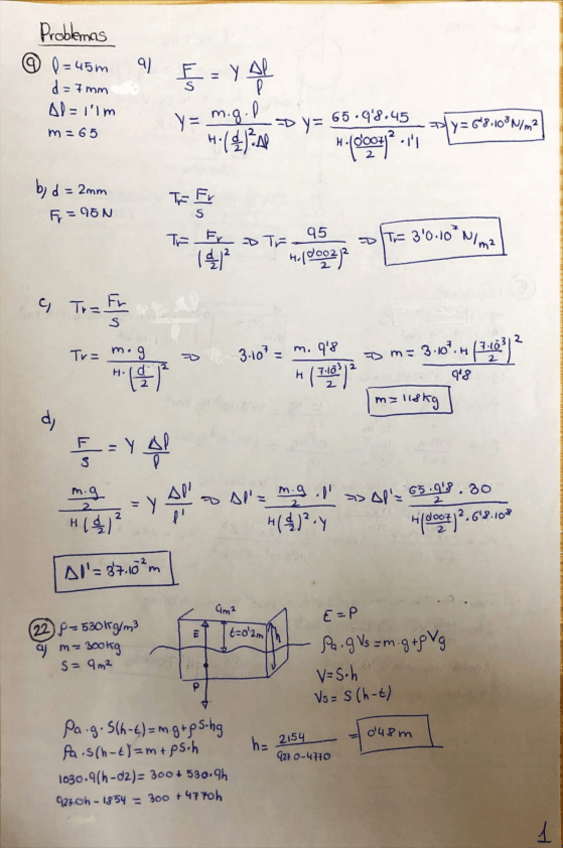 Problemas
9 l = 45m
d = 7mm
Δl = 1'1m
m = 65
a) F/S = Y Δl/l
Y = m·g·l / H·(d/2)²·Δl => Y = 65·9'8·45 / H·(0'007/2)²·1'1 => Y = 6'8·10⁸ N/m²
b) d = 2mm
Fr = 95N
Tr = Fr/S
Tr = Fr/(d/2)² => Tr = 95 / H·(0'002/2)² => Tr = 3'0·10⁷ N/m²
c) Tr = Fr/S
Tr = m·g / H·(d/2)² => 3·10⁷ = m·9'8 / H (7·10⁻³/2)² => m = 3·10⁷·H (7·10⁻³/2)² / 9'8
m = 118kg
d) F/S = Y Δl/l
m·g/2 / H(d/2)² = Y Δl'/l' => Δl' = m·g/2 · l' / H(d/2)²·Y => Δl' = 65·9'8/2 · 30 / H(0'007/2)²·6'8·10⁸
Δl' = 3'7·10⁻² m
22 ρ = 530kg/m³
a) m = 300kg
S = 9m²
9m²
E
t=0'2m
h
P
E = P
ρa·g Vs = m·g + ρVg
V = S·h
Vs = S(h-t)
ρa·g·S(h-t) = m·g + ρS·hg
ρa·S(h-t) = m + ρS·h
1030·9(h-02) = 300 + 530·9h
9270h - 1854 = 300 + 4770h
h = 2154 / 9270-4770 = 0'48m
1